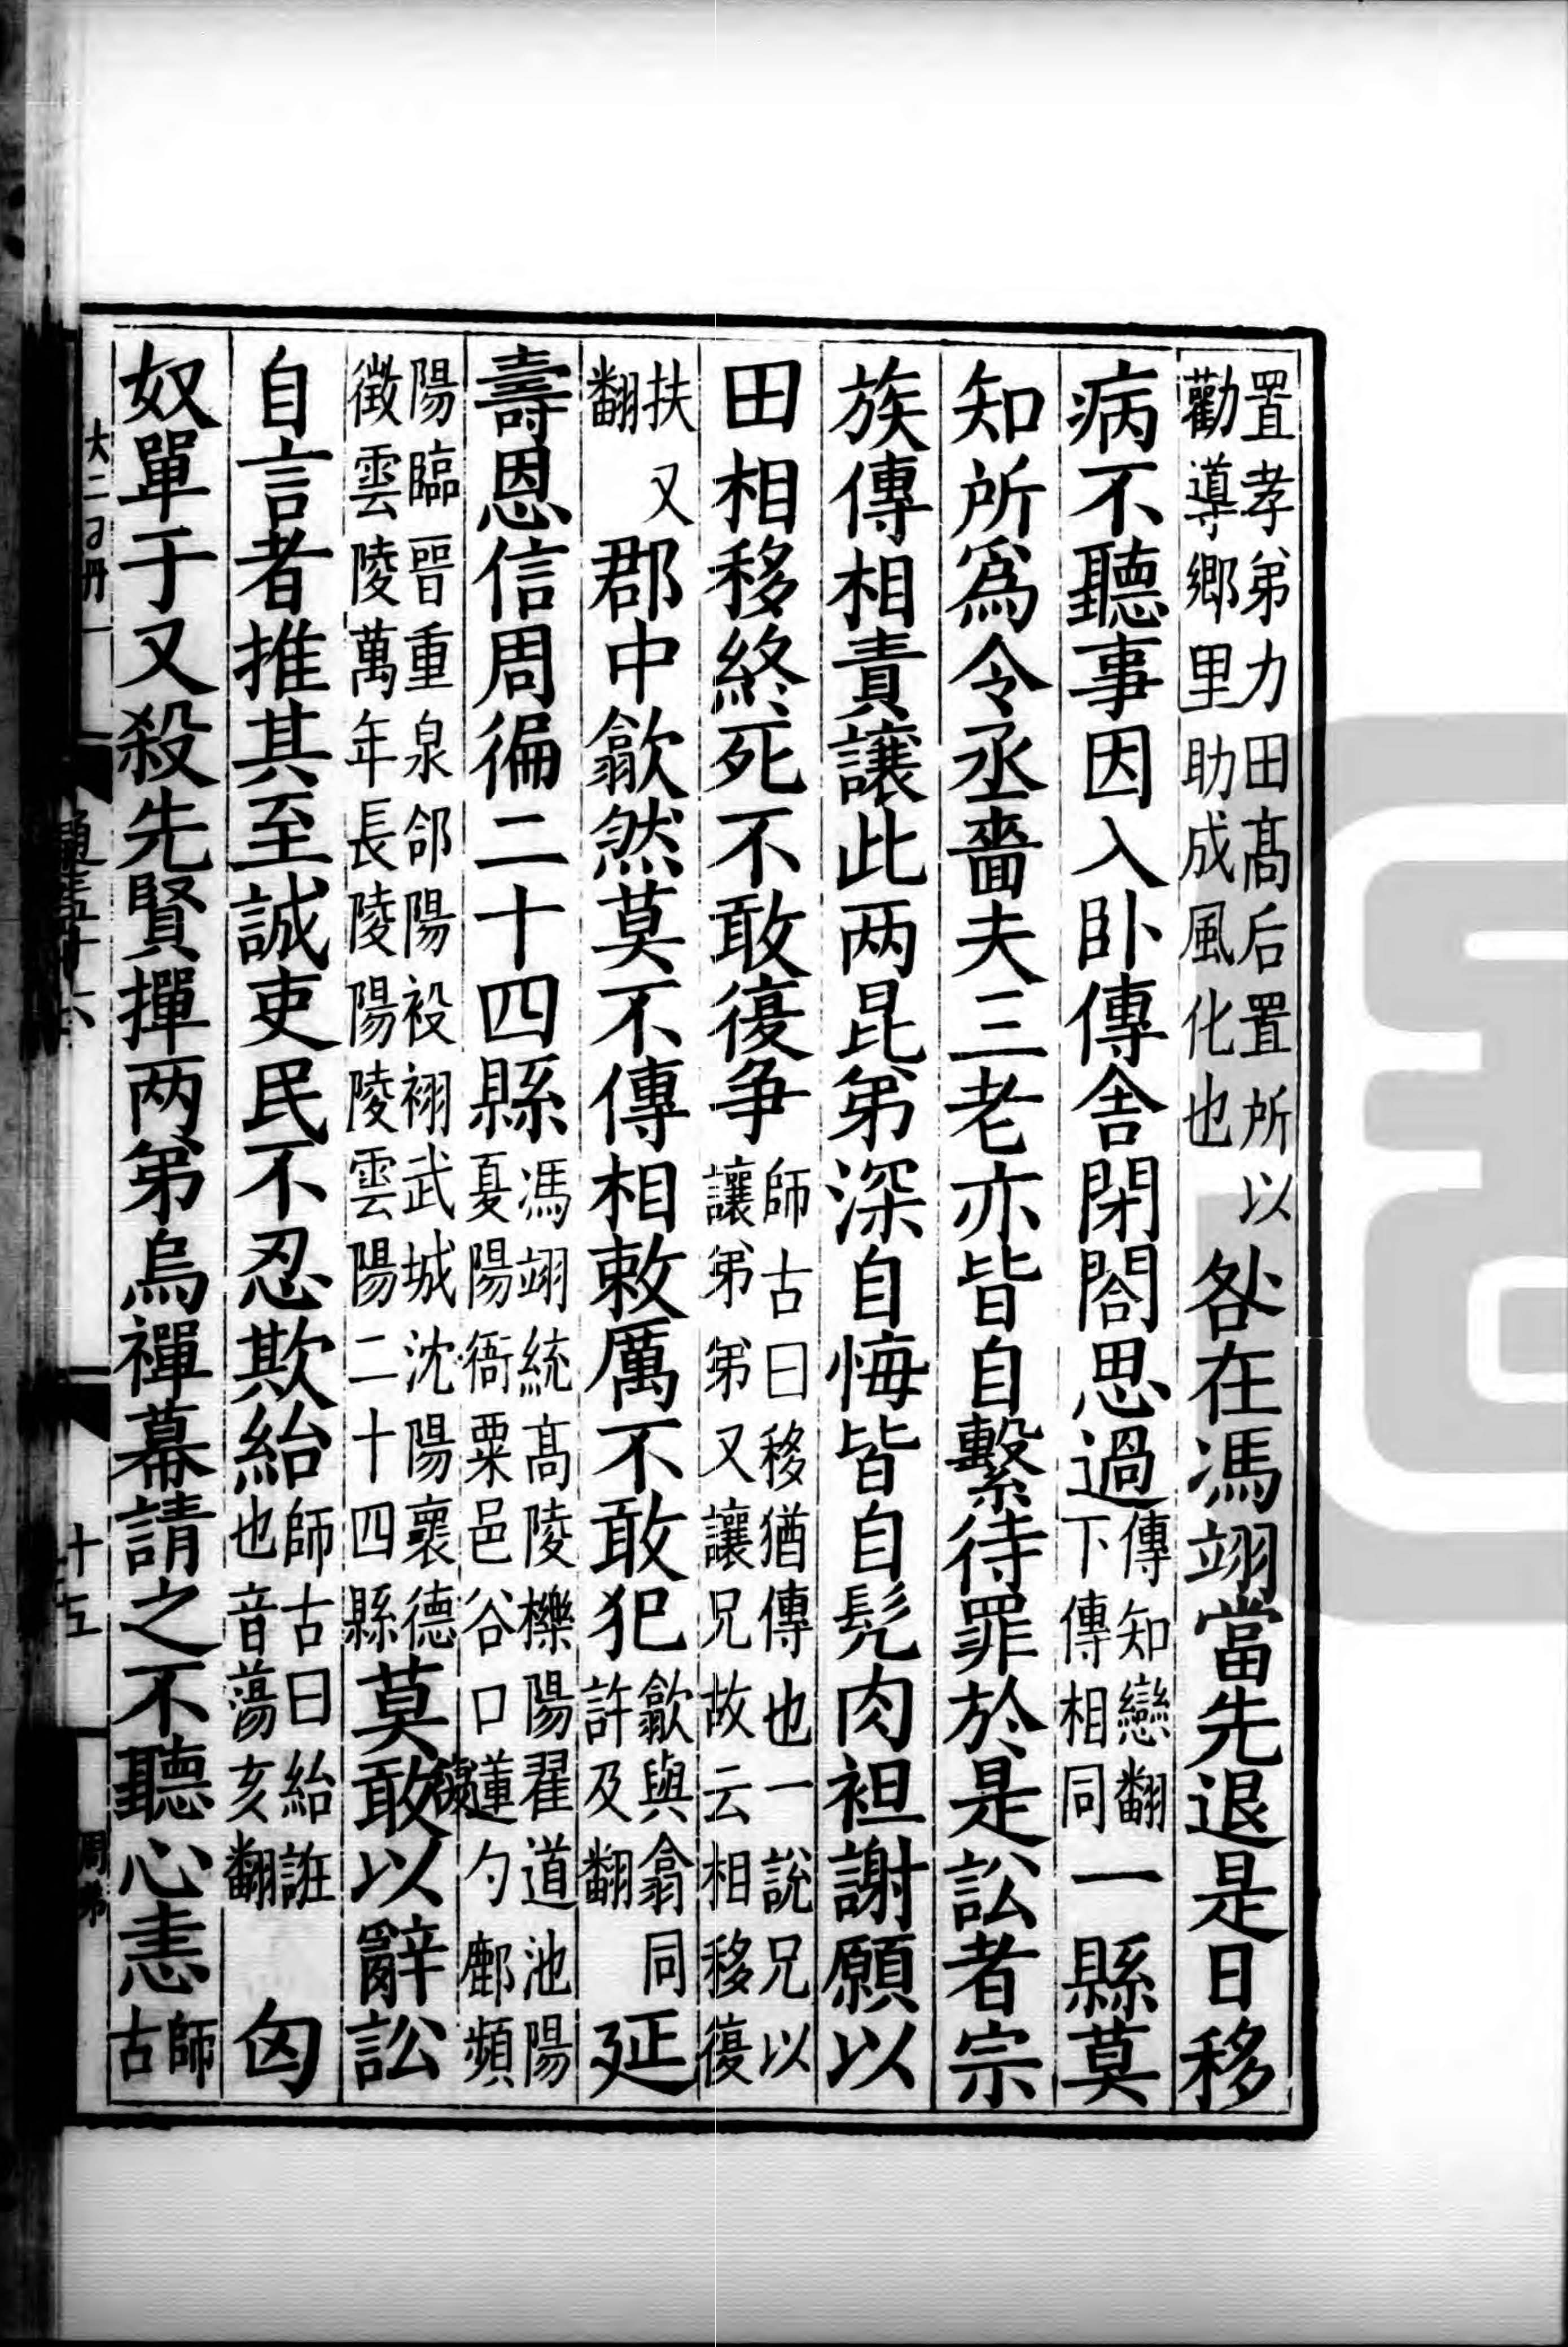 置孝弟力田髙后置所以勸導鄉里助成風化也咎在馮翊當先退是日移
病不聽事因入卧傳舍閉閤思過傳知戀翻下傳相同一縣莫
知所爲令丞嗇夫三老亦皆自繫待罪於是訟者宗
族傳相責讓此两昆弟深自悔皆自髠肉袒謝願以
田相移終死不敢復爭師古曰移猶傳也一說兄以讓弟弟又讓兄故云相移復
扶又翻郡中歙然莫不傳相敕厲不敢犯歙與翕同許及翻延
壽恩信周徧二十四縣馮翊統髙陵櫟陽翟道池陽夏陽衙粟邑谷口蓮勺鄜頻
陽臨晉重泉郃陽祋祤武城沈陽褱德徵雲陵萬年長陵陽陵雲陽二十四縣莫敢以辭訟
自言者推其至誠吏民不忍欺紿師古曰紿誑也音蕩亥翻 匈
奴單于又殺先賢撣两弟烏禪幕請之不聽心恚師古
十五